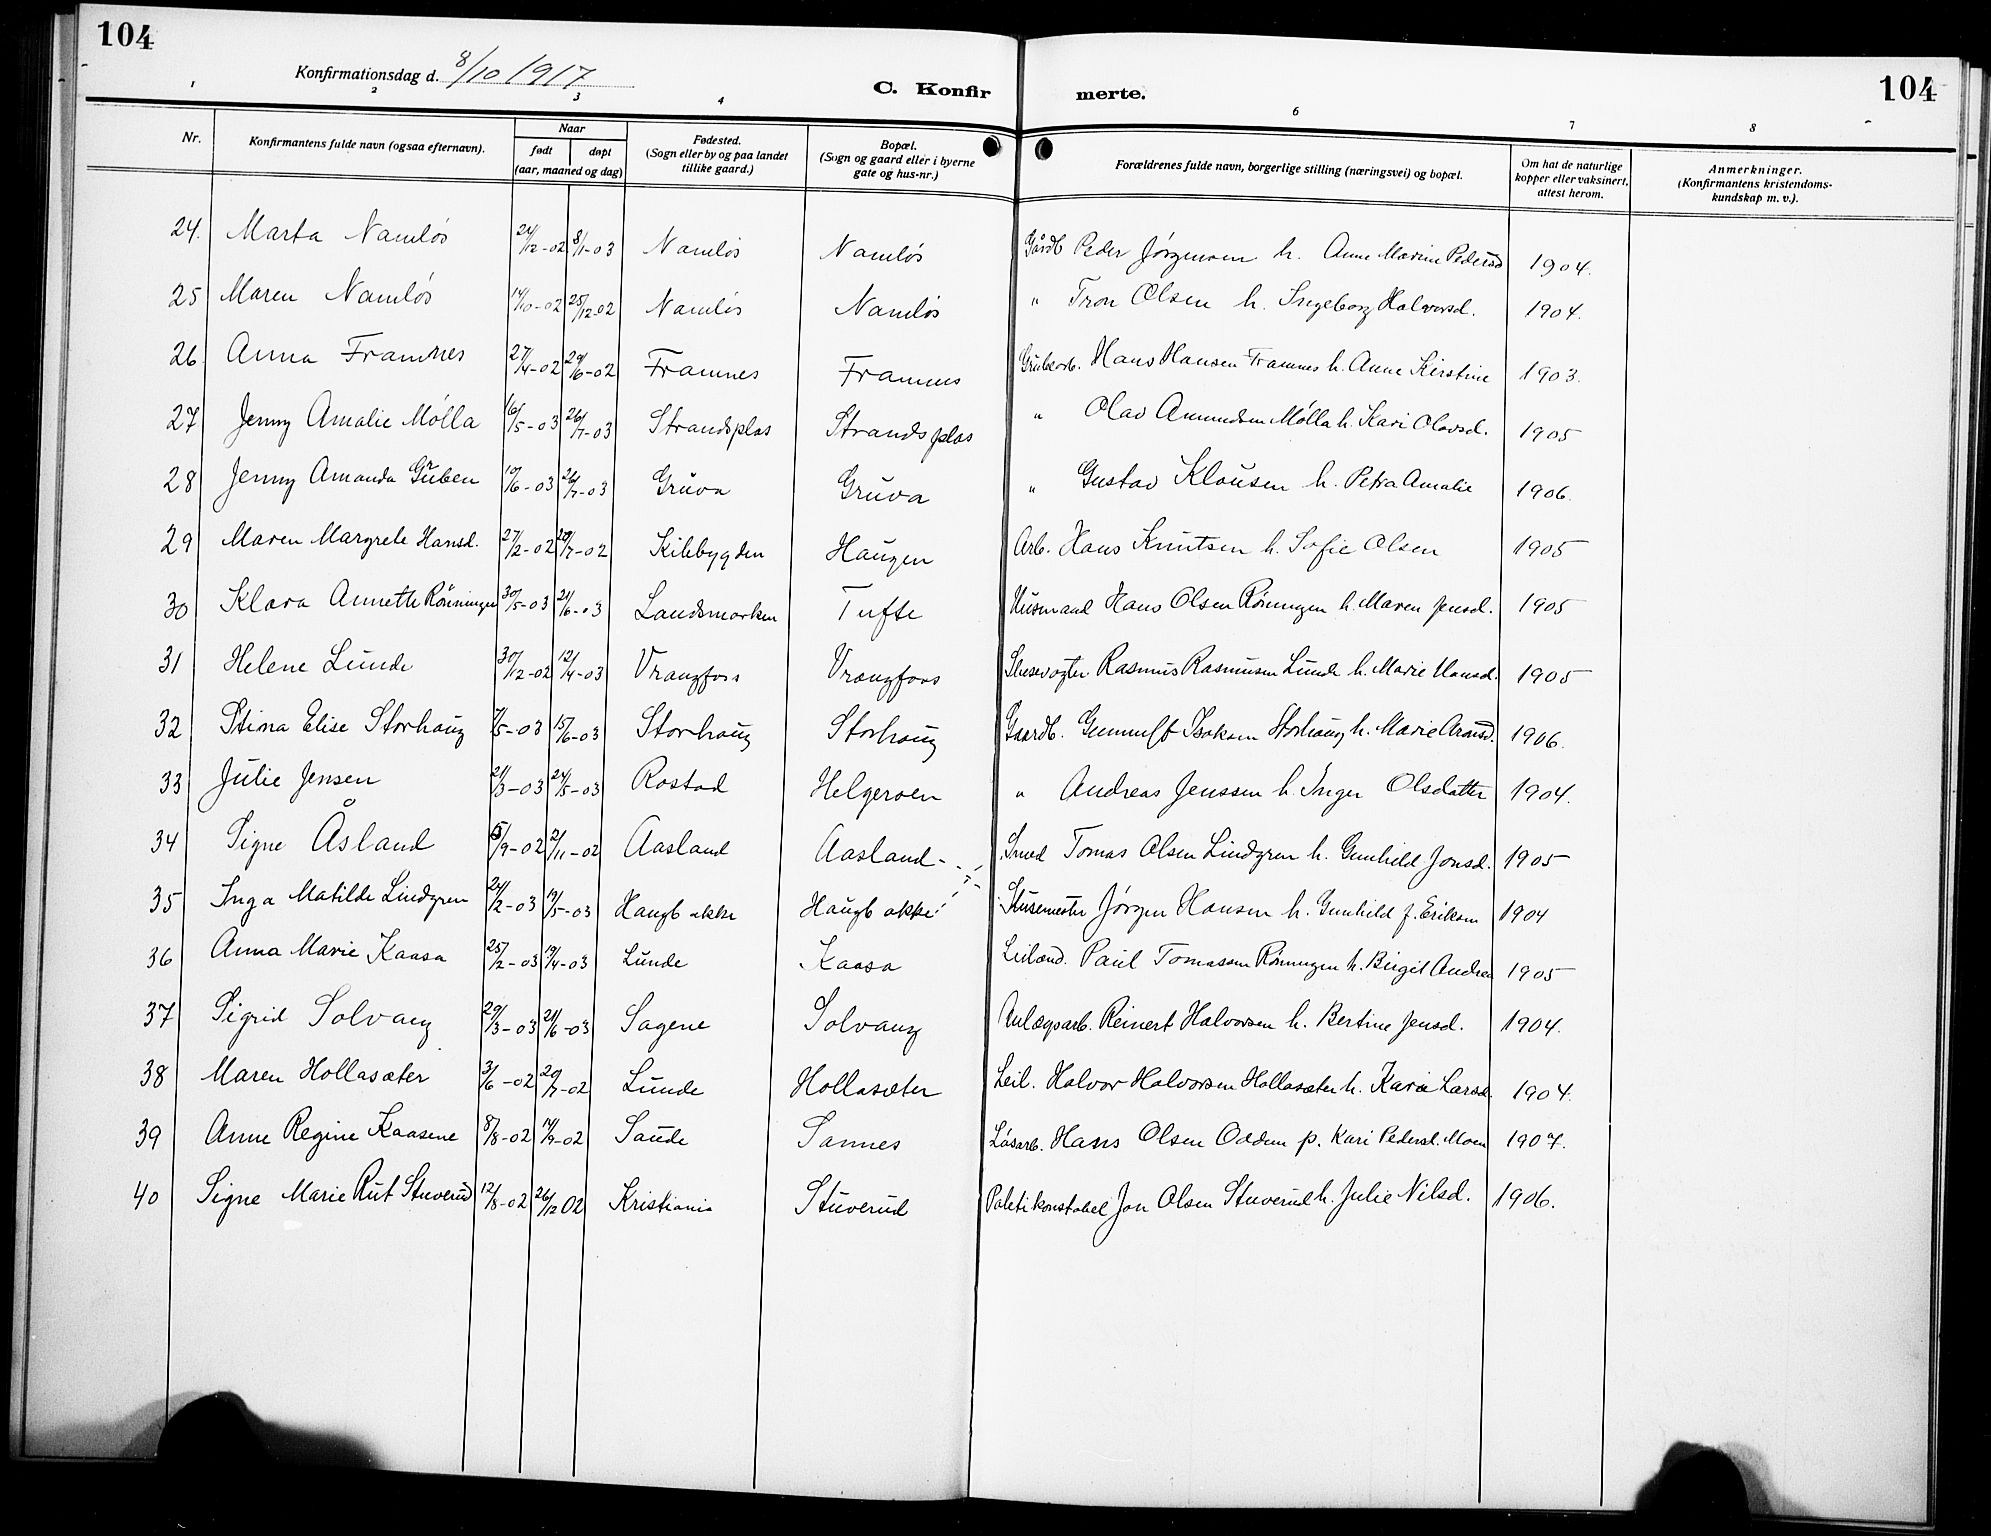 104
Konfirmationsdag d. 8/10 1917
C. Konfir merte.
104
1 2 3 4 5 6 7 8
Nr. Konfirmantens fulde navn (ogsaa efternavn). Naar født døpt (aar, maaned og dag) Fødested. (Sogn eller by og paa landet tillike gaard.) Bopæl. (Sogn og gaard eller i byerne gate og hus-nr.) Forældrenes fulde navn, borgerlige stilling (næringsvei) og bopæl. Om hat de naturlige kopper eller vaksinert, attest herom. Anmerkninger. (Konfirmantens kristendomskundskap m. v.).
24. Marta Namløs 24/12-02 8/1-03 Namløs Namløs Gårdb Peder Jørgensen h. Anne Marine Pedersd 1904.
25 Maren Namløs 14/10-02 25/12-02 Namløs Namløs " Tron Olsen h. Ingeborg Halvorsd. 1904.
26 Anna Framnes 27/4-02 29/6-02 Framnes Framnes Grubearb. Hans Hansen Framnes h. Anne Kirstine 1903.
27 Jenny Amalie Mølla 16/5-03 26/7-03 Strandsplas Strandsplas " Olav Amundsen Mølla h. Kari Olavsd. 1905
28 Jenny Amanda Gruben 10/6-03 26/7-03 Gruva Gruva " Gustav Klausen h. Petra Amalie 1906.
29 Maren Margrete Hansd. 27/2-02 20/7-02 Kilebygden Haugen Arb. Hans Knutsen h. Sofie Olsen 1905
30 Klara Annette Rönningen 30/5-03 21/6-03 Landsmarken Tufte Husmand Hans Olsen Rönningen h. Maren Jensd. 1905
31 Helene Lunde 30/12-02 12/4-03 Vrangfoss Vrangfoss Slusevogter Rasmus Rasmussen Lunde h. Marie Hansd. 1905
32 Stina Elise Storhaug 7/5-03 15/6-03 Storhaug Storhaug Gaardb. Gunnulf Isaksen Storhaug h. Marie Aronsd. 1906.
33 Julie Jensen 21/3-03 24/5-03 Rostad Helgeroen " Andreas Jenssen h. Inger Olsdatter 1904.
34 Signe Åsland 5/9-02 2/11-02 Aasland Aasland Smed Tomas Olsen Lindgren h. Gunhild Jonsd. 1905
35 Inga Matilde Lindgren 24/2-03 19/5-03 Haugb akke Haugb akke Slusemester Jørgen Hansen h. Gunhild f. Eriksen 1904
36 Anna Marie Kaasa 25/2-03 19/4-03 Lunde Kaasa Leiland. Paul Tomassen Rönningen h. Birgit Andrea 1905
37 Sigrid Solvang 29/3-03 21/6-03 Sagene Solvang Anlægsarb. Reinert Halvorsen h. Bertine Jensd. 1904.
38 Maren Hollasæter 3/6-02 20/7-02 Lunde Hollasæter Leil. Halvor Halvorsen Hollasæter h. Karie Larsd. 1904.
39 Anne Regine Kaasene 8/8-02 14/9-02 Saude Sannes Løsarb. Hans Olsen Oddem p. Kari Pedersd. Moen 1907.
40 Signe Marie Rut Stuverud 12/8-02 26/12 02 Kristiania Stuverud Politikonstabel Jon Olsen Stuverud h. Julie Nilsd. 1906.